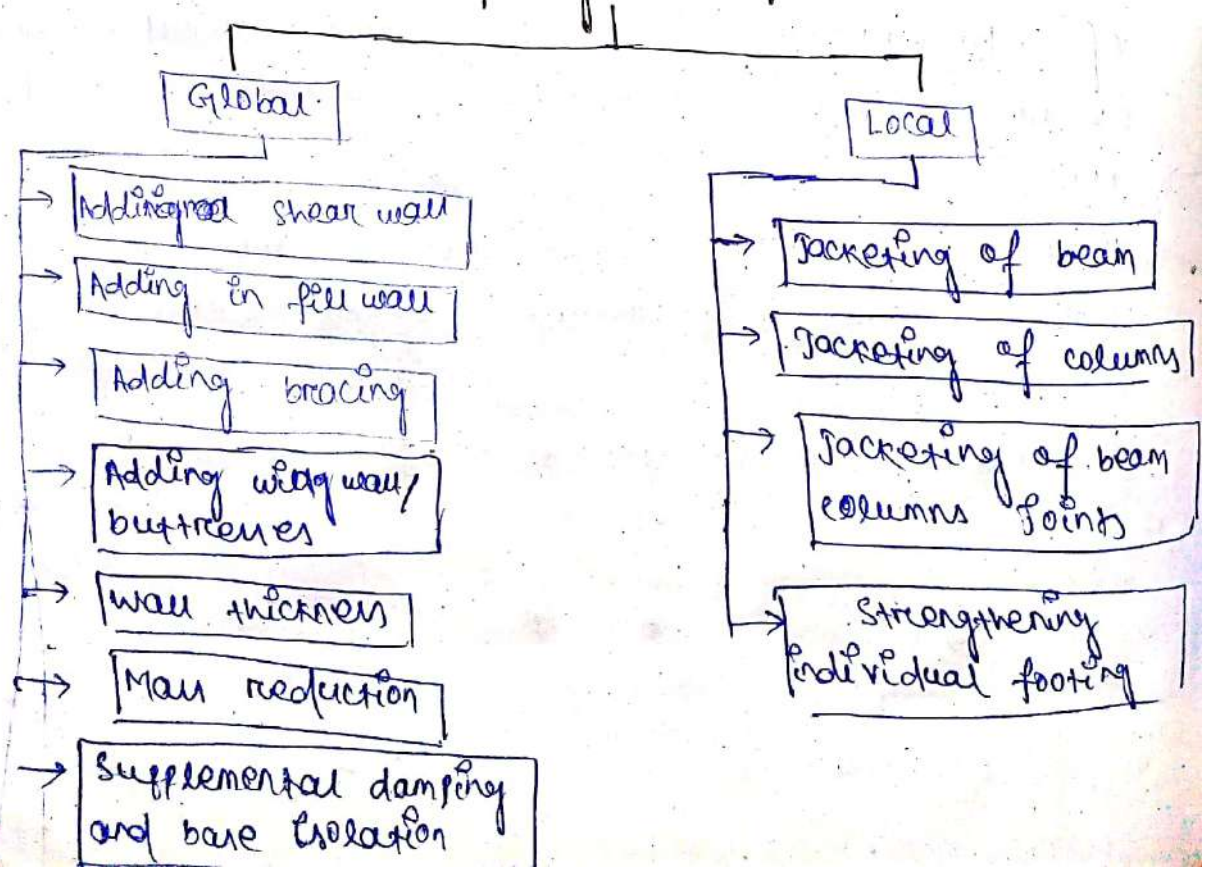 Global
Local
Adding shear wall
Adding in fill wall
Adding bracing
Adding wing wall/
buttresses
Wall thickness
Mass reduction
Supplemental damping
and base isolation
Jacketing of beam
Jacketing of columns
Jacketing of beam
columns Joints
Strengthening
individual footing